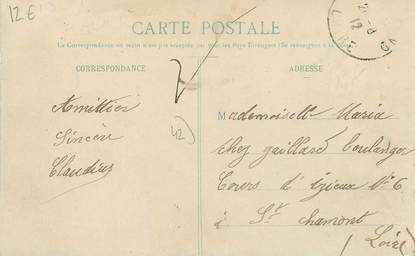 12 E
CARTE POSTALE
La Correspondance au recto n'est pas acceptée par tous les Pays Étrangers (Se renseigner à la
CORRESPONDANCE
ADRESSE
Amitiés
Sincère
Claudius
42)
Mademoiselle Maria
chez gaillard boulanger
Cours d'Izieux N° 6
à St chamont
(Loire)